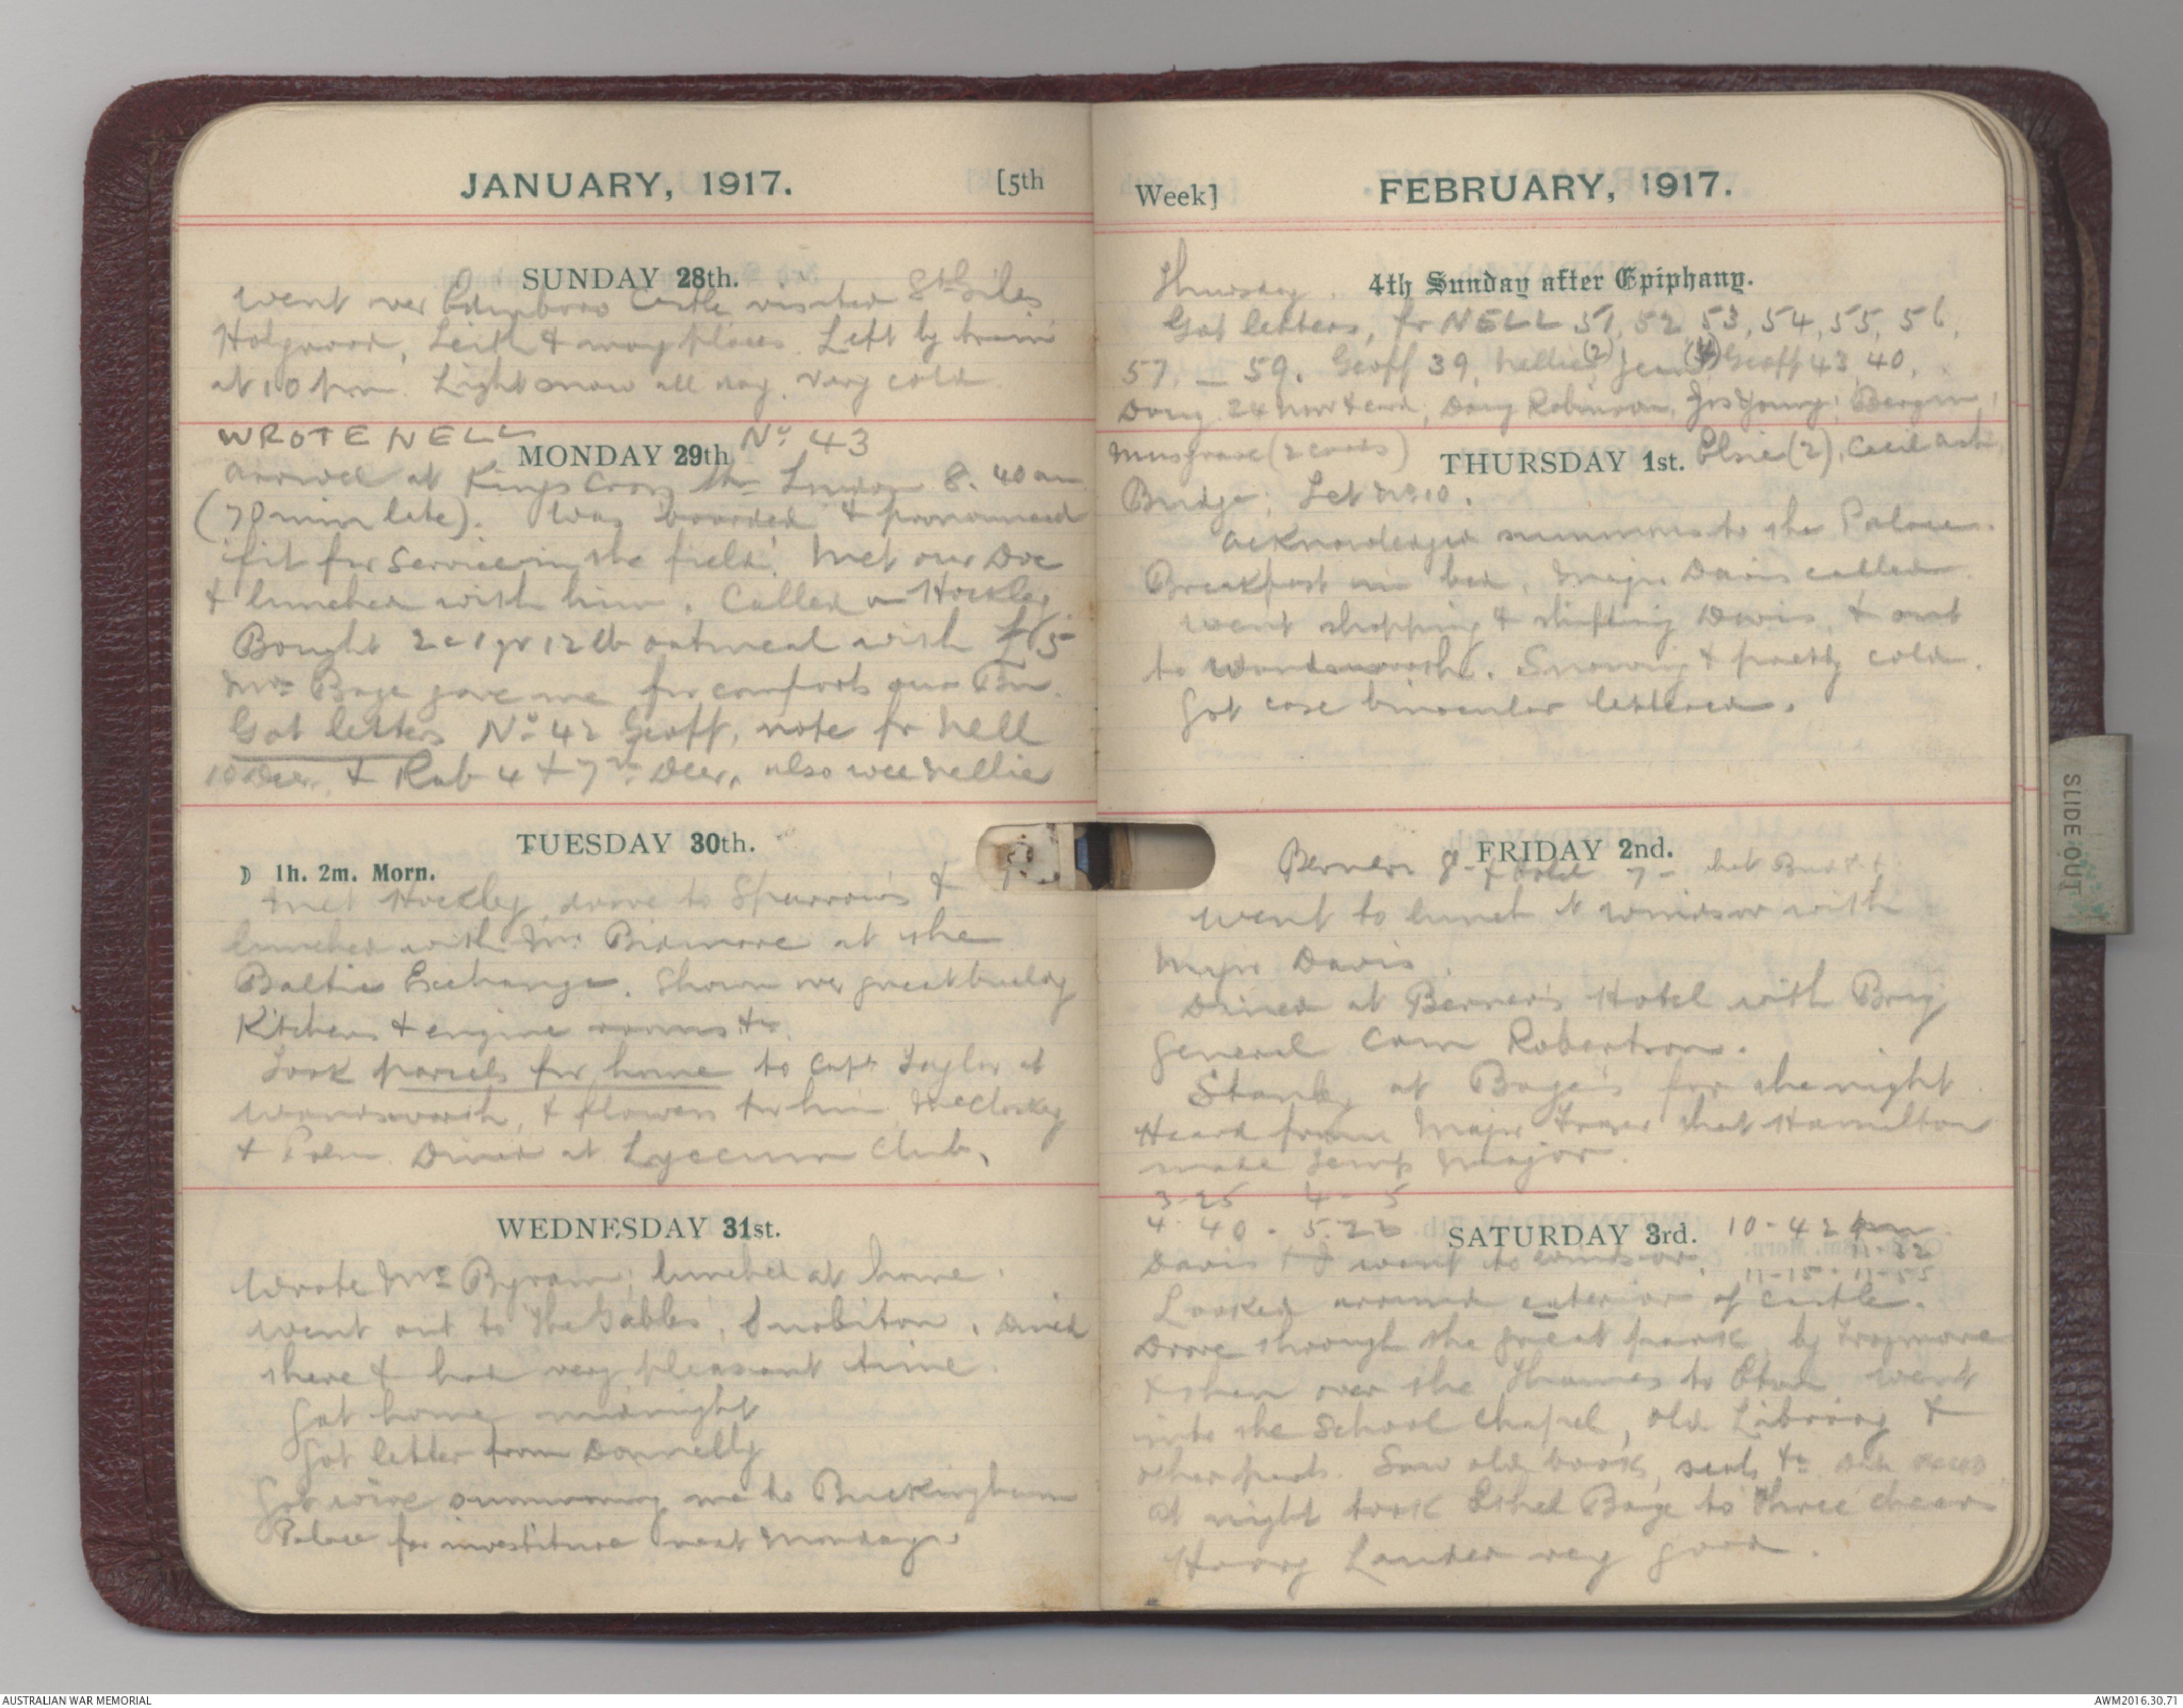 JANUARY, 1917. [5th
SUNDAY 28th.
Went over Edinboro Castle visited St Giles
Holyrood, Leith & many places. Left by train
at 10 pm. Light snow all day. Very cold
WROTE NELL No 43
MONDAY 29th
Arrived at Kings Cross Stn London 8.40 am
(70 min late). Was boarded & pronounced
'fit for service in the field'. Met our Doc
& lunched with him. Called on Hockley.
Bought 2c 1qr 12lb oatmeal with £15
Mrs Bage gave me for comforts our Bn.
Got letters No 42 Geoff, note fr Nell
10 Decr, & Rob 4 & 7th Decr, also wee Nellie
TUESDAY 30th.
1h. 2m. Morn.
Met Hockley, drove to Sparrow's &
lunched with Mr Birdmore at the
Baltic Exchange. Shown over great buildg
Kitchens & engine rooms &c.
Took parcels for home to Capt Taylor at
Wandsworth, & flowers for him, McCloskey
& Dined at Lyceum Club.
WEDNESDAY 31st.
Wrote Mrs Byram; lunched at home.
went out to The Gables, Surbiton, dined
there & had very pleasant time.
Got home midnight
Got letter from Donnelly
Got wire summoning me to Buckingham
Palace for investiture next Monday.
Week] FEBRUARY, 1917.
Thursday 4th Sunday after Epiphany.
Got letters, fr NELL 51, 52 53, 54, 55, 56,
57, — 59. Geoff 39, Nellie (2) Jean (4) Geoff 43, 40,
Doug 24 Nov & card, Doug Robinson, Jos Young, Bergin,
Musgrave (2 cards) Elsie (2), Cecil
THURSDAY 1st.
Bridge. Let No 10.
Acknowledged summons to the Palace.
Breakfast in bed. Major Davis called
went shopping & shifting Davis, & out
to Wandsworth. Snowing & pretty cold.
Got case binocular lettered.
FRIDAY 2nd.
Berners 8-
went to lunch at Windsor with
Major Davis.
Dined at Berner's Hotel with Brig
General Cam Robertson.
Stank, at Bage's for the night
Heard from Major Fraser that Hamilton
made temp Major.
3-25 4- 5
4.40 - 5.22
SATURDAY 3rd. 10-42
11-22
11-15 - 11-55
Davis & I went to Windsor.
Looked around exterior of castle.
Drove through the great park by Frogmore
& then over the Thames to Eton went
into the School Chapel, old Library &
other parts. Saw old books, seats &c.
at night took Ethel Bage to Three cheers
Harry Lauder very good.
SLIDE OUT
AUSTRALIAN WAR MEMORIAL
AWM2016.30.71